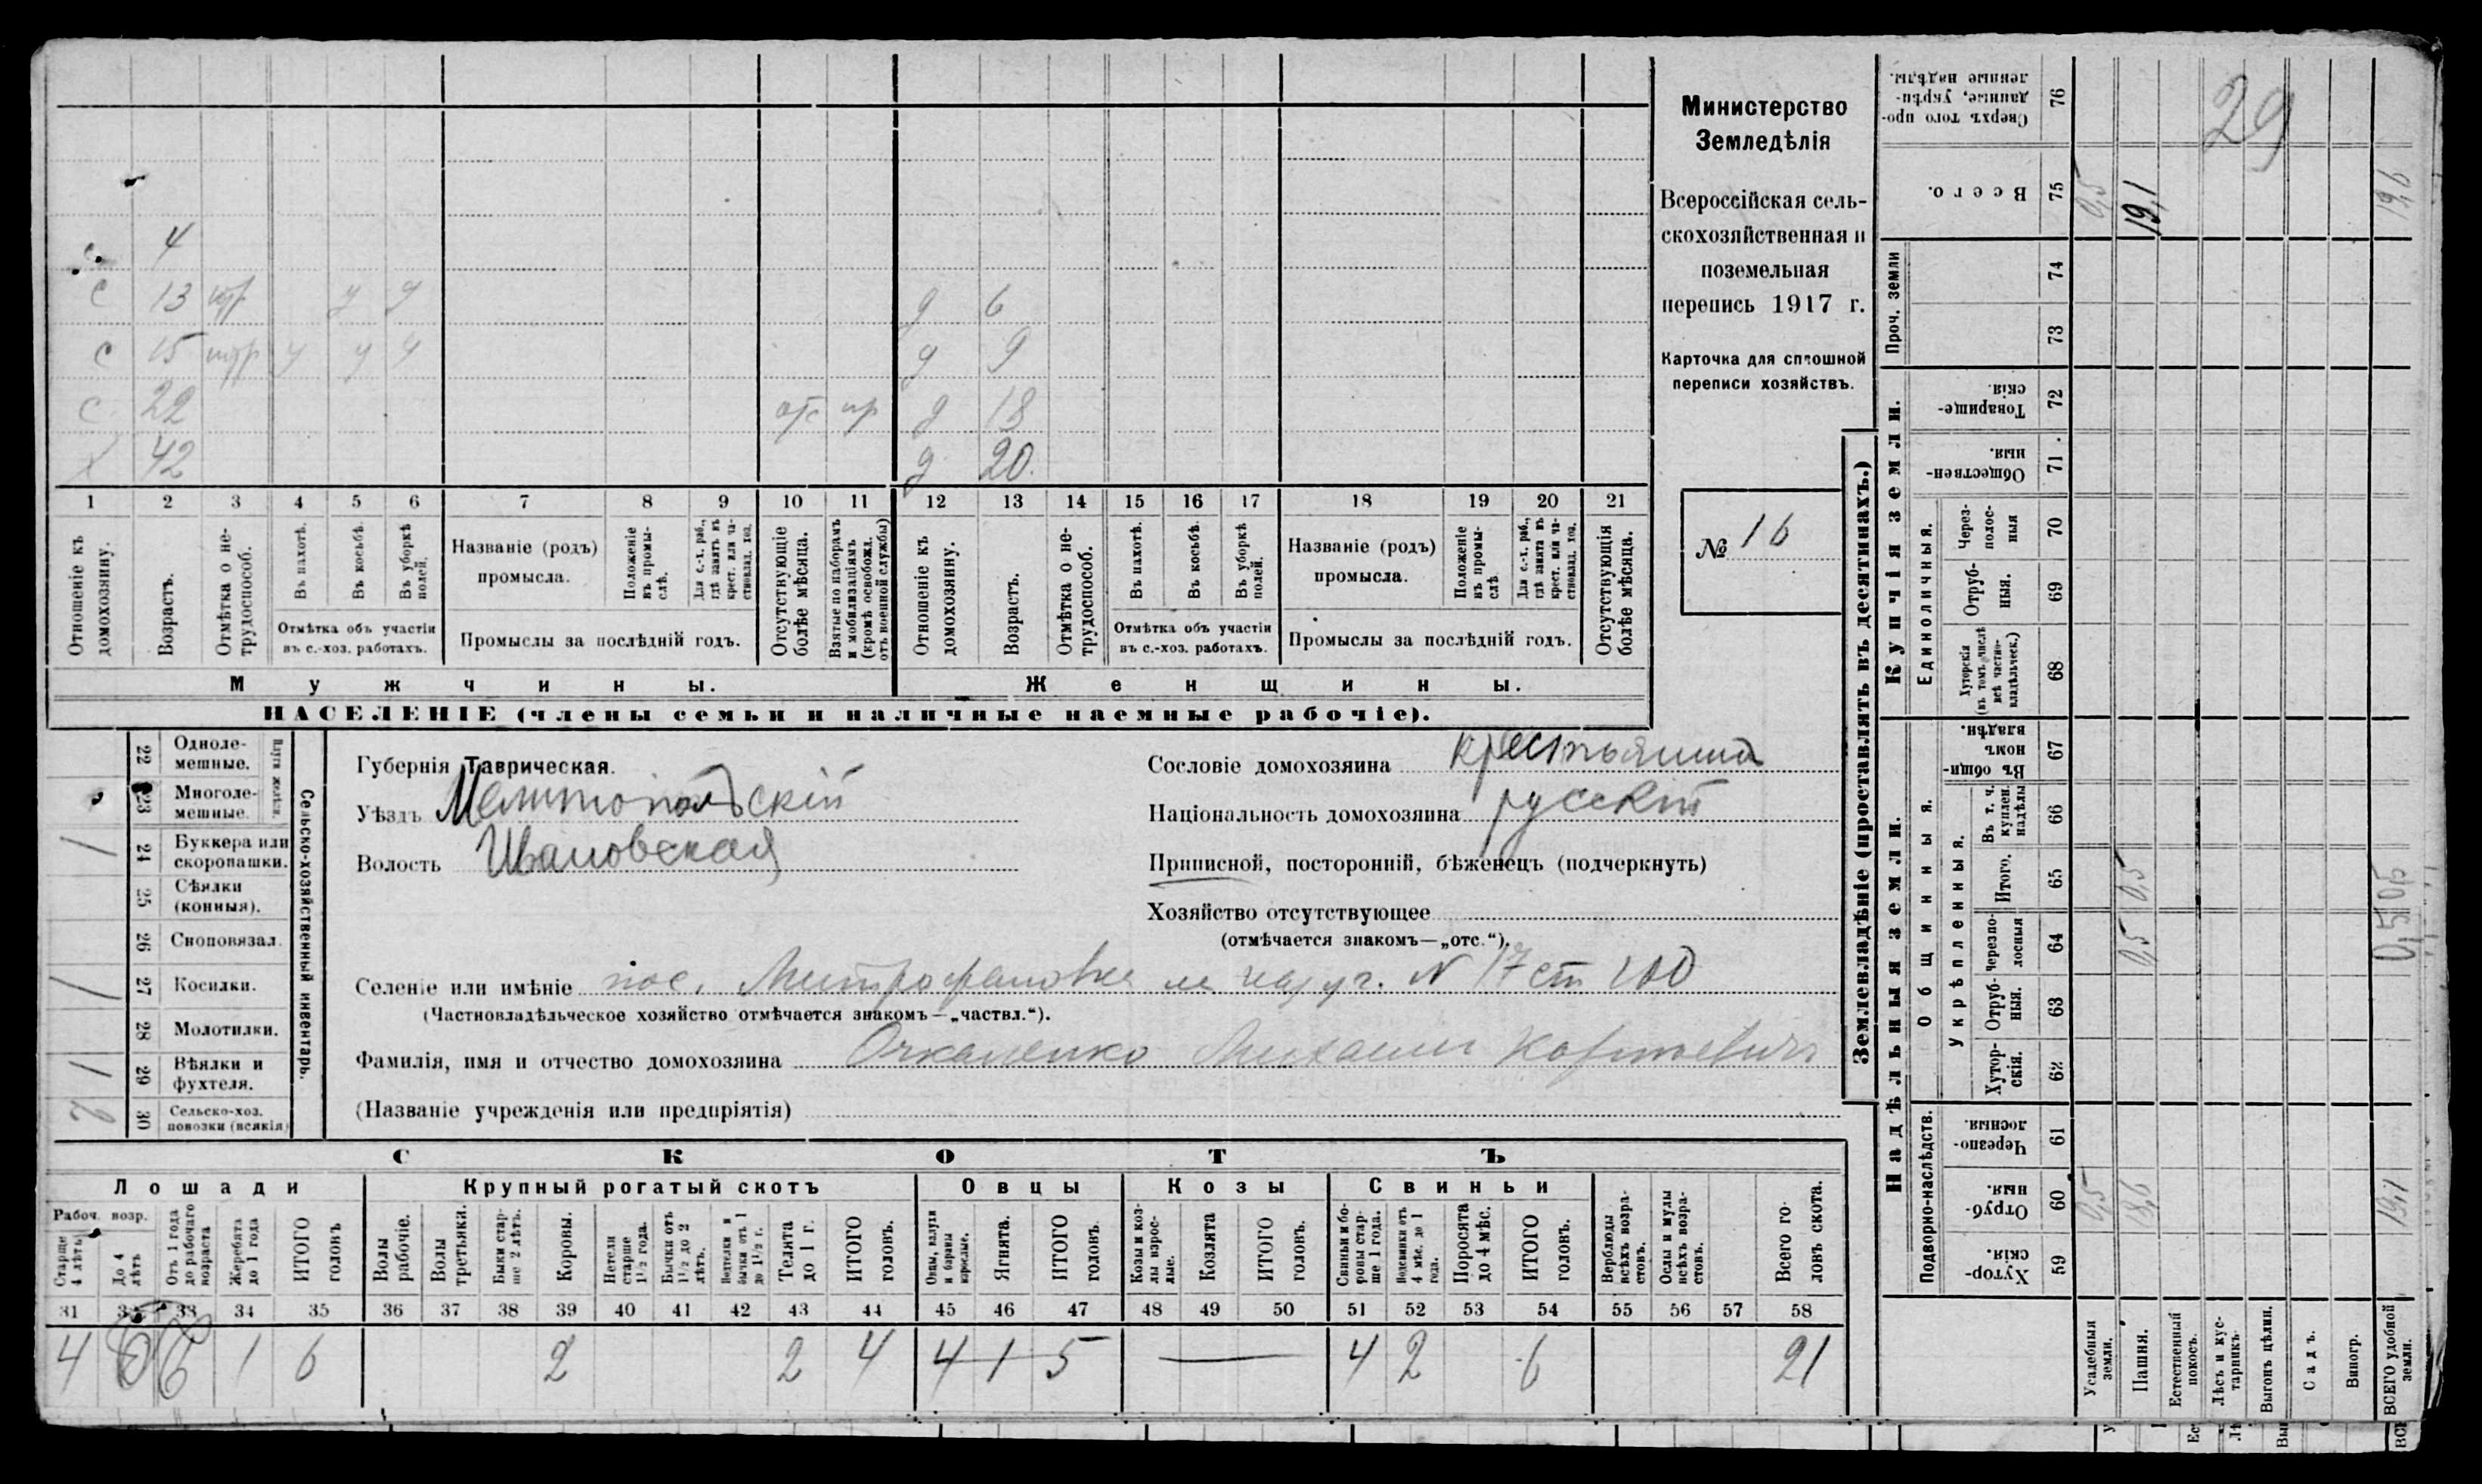 4
С 13 у у
С 15 у у у
С 22 отс
Х 42
д 6
д 9
д 18
д 20
1 2 3 4 5 6 7 8 9 10 11 12 13 14 15 16 17 18 19 20 21
Отношеніе къ домохозяину.
Возрастъ.
Отмѣтка о не-трудоспособ.
Въ пахотѣ.
Въ косьбѣ.
Въ уборкѣ полей.
Отмѣтка объ участіи
въ с.-хоз. работахъ.
Названіе (родъ)
промысла.
Положеніе въ промы-слѣ.
Для с.-х. раб., гдѣ занятъ въ крест. или ча-стновлад. хоз.
Промыслы за послѣдній годъ.
Отсутствующіе болѣе мѣсяца.
Взятые по наборамъ и мобилизаціямъ (кромѣ освобожд. отъ военной службы)
Отношеніе къ домохозяину.
Возрастъ.
Отмѣтка о не-трудоспособ.
Въ пахотѣ.
Въ косьбѣ.
Въ уборкѣ полей.
Отмѣтка объ участіи
въ с.-хоз. работахъ.
Названіе (родъ)
промысла.
Положеніе въ промы-слѣ.
Для с.-х. раб., гдѣ занята въ крест. или ча-стновлад. хоз.
Промыслы за послѣдній годъ.
Отсутствующія болѣе мѣсяца.
Мужчины.
Женщины.
НАСЕЛЕНІЕ (члены семьи и наличные наемные рабочіе).
Министерство
Земледѣлія
Всероссійская сель-
скохозяйственная и
поземельная
перепись 1917 г.
Карточка для сплошной
переписи хозяйствъ.
№ 16
22 Одноле-
мешные.
23 Многоле-
мешные.
24 Буккера или
скоропашки.
25 Сѣялки
(конныя).
26 Сноповязал.
27 Косилки.
28 Молотилки.
29 Вѣялки и
фухтеля.
30 Сельско-хоз.
повозки (всякія)
Сельско-хозяйственный инвентарь.
Губернія Таврическая.
Уѣздъ Мелитопольскій
Волость Ивановская
Сословіе домохозяина крестьянинъ
Національность домохозяина русскій
Приписной, посторонній, бѣженецъ (подчеркнуть)
Хозяйство отсутствующее
(отмѣчается знакомъ—„отс.“).
Селеніе или имѣніе пос. Митрофановка N 17 ст 100
(Частновладѣльческое хозяйство отмѣчается знакомъ—„частвл.“).
Фамилія, имя и отчество домохозяина Михаилъ
(Названіе учрежденія или предпріятія)
СКОТЪ
Лошади
Крупный рогатый скотъ
Овцы
Козы
Свиньи
Рабоч. возр.
Старше 4 лѣтъ
До 4 лѣтъ
Отъ 1 года до рабочаго возраста
Жеребята до 1 года
ИТОГО головъ
Волы рабочіе.
Волы третьяки.
Быки стар-ше 2 лѣтъ.
Коровы.
Нетели старше 1½ года.
Бычки отъ 1½ до 2 лѣтъ.
Нетелки и бычки отъ 1 до 1½ г.
Телята до 1 г.
ИТОГО головъ.
Овцы, валухи и бараны взрослые.
Ягнята.
ИТОГО головъ.
Козы и коз-лы взрос-лые.
Козлята
ИТОГО головъ.
Свиньи и бо-ровы стар-ше 1 года.
Подсвинки отъ 4 мѣс. до 1 года.
Поросята до 4 мѣс.
ИТОГО головъ.
Верблюды всѣхъ возра-стовъ.
Ослы и мулы всѣхъ возра-стовъ.
Всего го-ловъ скота.
31 32 33 34 35 36 37 38 39 40 41 42 43 44 45 46 47 48 49 50 51 52 53 54 55 56 57 58
4 1 6 2 2 4 4 1 5 — 4 2 6 21
Землевладѣніе (проставлять въ десятинахъ.)
Надѣльныя земли.
Купчія земли.
Подворно-наслѣдств.
Общинныя.
Укрѣпленныя.
Единоличныя.
Проч. земли
59 Хутор-скія.
60 Отруб-ныя.
61 Черезпо-лосныя.
62 Хутор-скія.
63 Отруб-ныя.
64 Черезпо-лосныя
65 Итого.
66 Въ т. ч. куплен. надѣлы
67 Въ общин-номъ владѣн.
68 Хуторскія (въ томъ числѣ всѣ частно-владѣльческ.)
69 Отруб-ныя.
70 Через-полос-ныя
71 Обществен-ныя.
72 Товарище-скія.
73
74
75 Всего.
76 Сверхъ того про-данные, укрѣп-ленные надѣлы.
Усадебныя земли. 0,5 0,5
Пашня. 18,6 0,5 0,5 19,1
Естественный покосъ.
Лѣсъ и кус-тарникъ.
Выгонъ цѣлин.
Садъ.
Виногр.
ВСЕГО удобной земли. 19,1 0,5 0,5 19,6
29